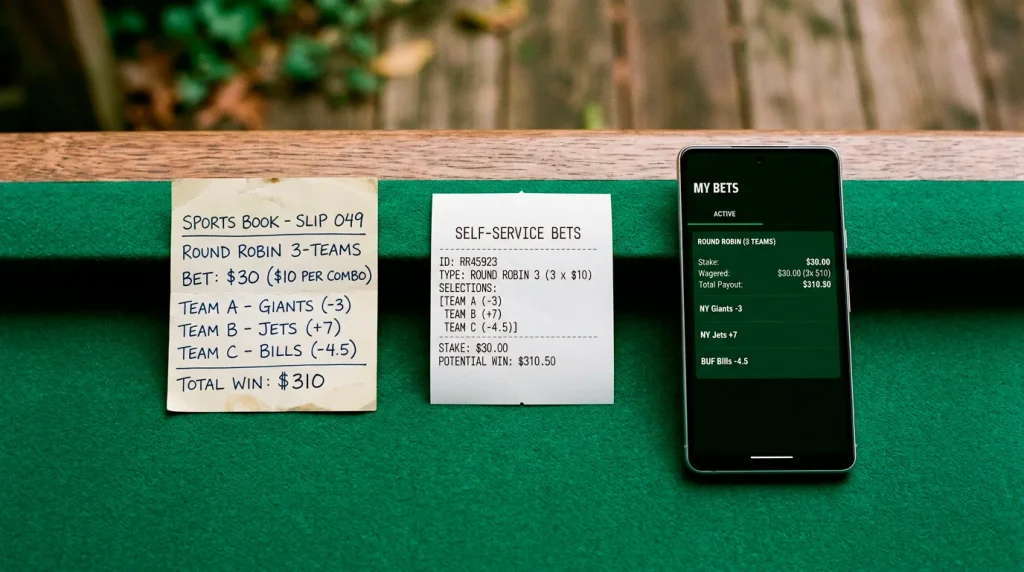 SPORTS BOOK - SLIP 049
ROUND ROBIN 3-TEAMS
BET: $30 ($10 PER COMBO)
TEAM A - GIANTS (-3)
TEAM B - JETS (+7)
TEAM C - BILLS (-4.5)
TOTAL WIN: $310
SELF-SERVICE BETS
ID: RR45923
TYPE: ROUND ROBIN 3 (3 x $10)
SELECTIONS:
[TEAM A (-3)
TEAM B (+7)
TEAM C (-4.5)]
STAKE: $30.00
POTENTIAL WIN: $310.50
MY BETS
ACTIVE
ROUND ROBIN (3 TEAMS)
Stake: $30.00
Wagered: $30.00 (3x 510)
Total Payout: $310.50
NY Giants -3
NY Jets +7
BUF Bills -4.5